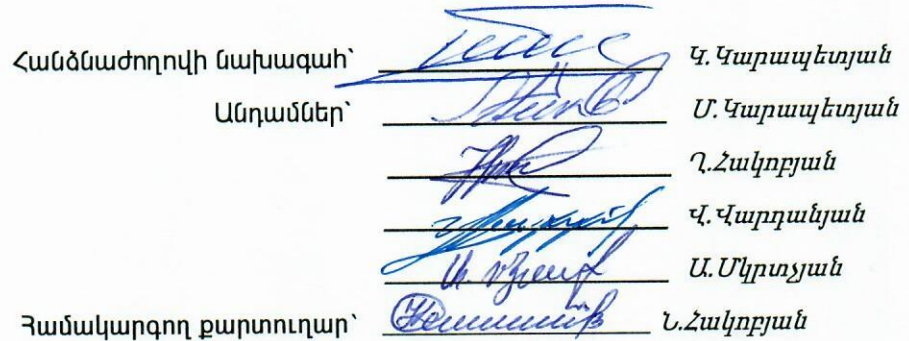 Հանձնաժողովի նախագահ՝ Կ.Կարապետյան
Անդամներ՝ Մ.Կարապետյան
Ղ.Հակոբյան
Վ.Վարդանյան
Ա.Մկրտչյան
Համակարգող քարտուղար՝ Ն.Հակոբյան